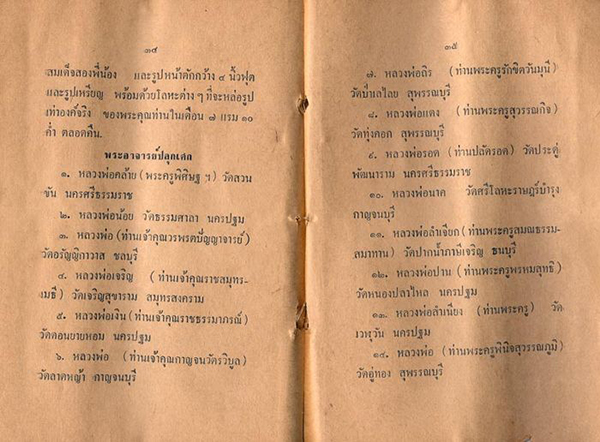 ๓๔
สมเด็จสองพี่น้อง และรูปหน้าตักกว้าง ๙ นิ้วฟุต
และรูปเหรียญ พร้อมด้วยโลหะต่าง ๆ ที่จะหล่อรูป
เท่าองค์จริง ของพระคุณท่านในเดือน ๗ แรม ๑๐
ค่ำ ตลอดคืน.
พระอาจารย์ปลุกเศก
๑. หลวงพ่อคล้าย (พระครูพิศิษฐ ฯ) วัดสวน
ขัน นครศรีธรรมราช
๒. หลวงพ่อน้อย วัดธรรมศาลา นครปฐม
๓. หลวงพ่อ (ท่านเจ้าคุณวรพรตปัญญาจารย์)
วัดอรัญญิกาวาส ชลบุรี
๔. หลวงพ่อเจริญ (ท่านเจ้าคุณราชสมุทร-
เมธี) วัดเจริญสุขาราม สมุทรสงคราม
๕. หลวงพ่อเงิน (ท่านเจ้าคุณราชธรรมาภรณ์)
วัดดอนยายหอม นครปฐม
๖. หลวงพ่อ (ท่านเจ้าคุณกาญจนวัตรวิบูล)
วัดลาดหญ้า กาญจนบุรี
๓๕
๗. หลวงพ่อถิร (ท่านพระครูรักขิตวันมุนี)
วัดป่าเลไลย สุพรรณบุรี
๘. หลวงพ่อแตง (ท่านพระครูสุวรรณกิจ)
วัดทุ่งคอก สุพรรณบุรี
๙. หลวงพ่อรอด (ท่านปลัดรอด) วัดประดู่
พัฒนาราม นครศรีธรรมราช
๑๐. หลวงพ่อนาค วัดศรีโลหะราษฎร์บำรุง
กาญจนบุรี
๑๑. หลวงพ่อลำเจียก (ท่านพระครูสมณธรรม-
สมาทาน) วัดปากน้ำภาษีเจริญ ธนบุรี
๑๒. หลวงพ่อปาน (ท่านพระครูพรหมสุทธิ)
วัดหนองปลาไหล นครปฐม
๑๓. หลวงพ่อลำเนียง (ท่านพระครู) วัด
เวฬุวัน นครปฐม
๑๔. หลวงพ่อ (ท่านพระครูพินิจสุวรรณภูมิ)
วัดอู่ทอง สุพรรณบุรี